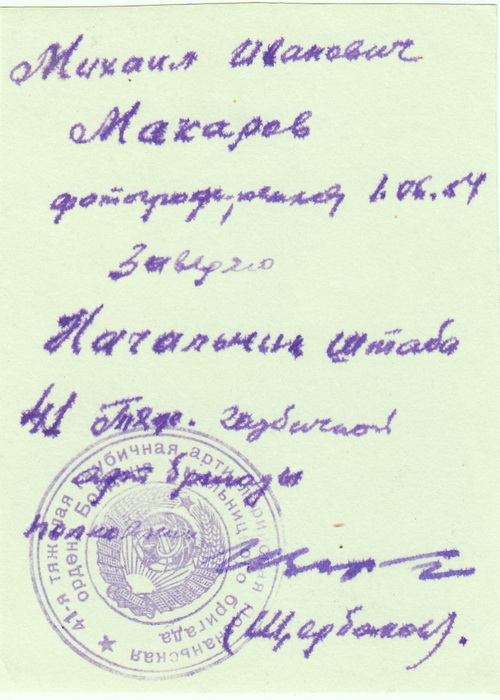 Михаил Иванович
Макаров
фотографировался 1.06.54
Заверяю
Начальник штаба
41 тяж. гаубичной
арт бригады
полковник
(Щербаков).
41-я тяжелая гаубичная артиллерийская Познаньская
ордена Богдана Хмельницкого бригада